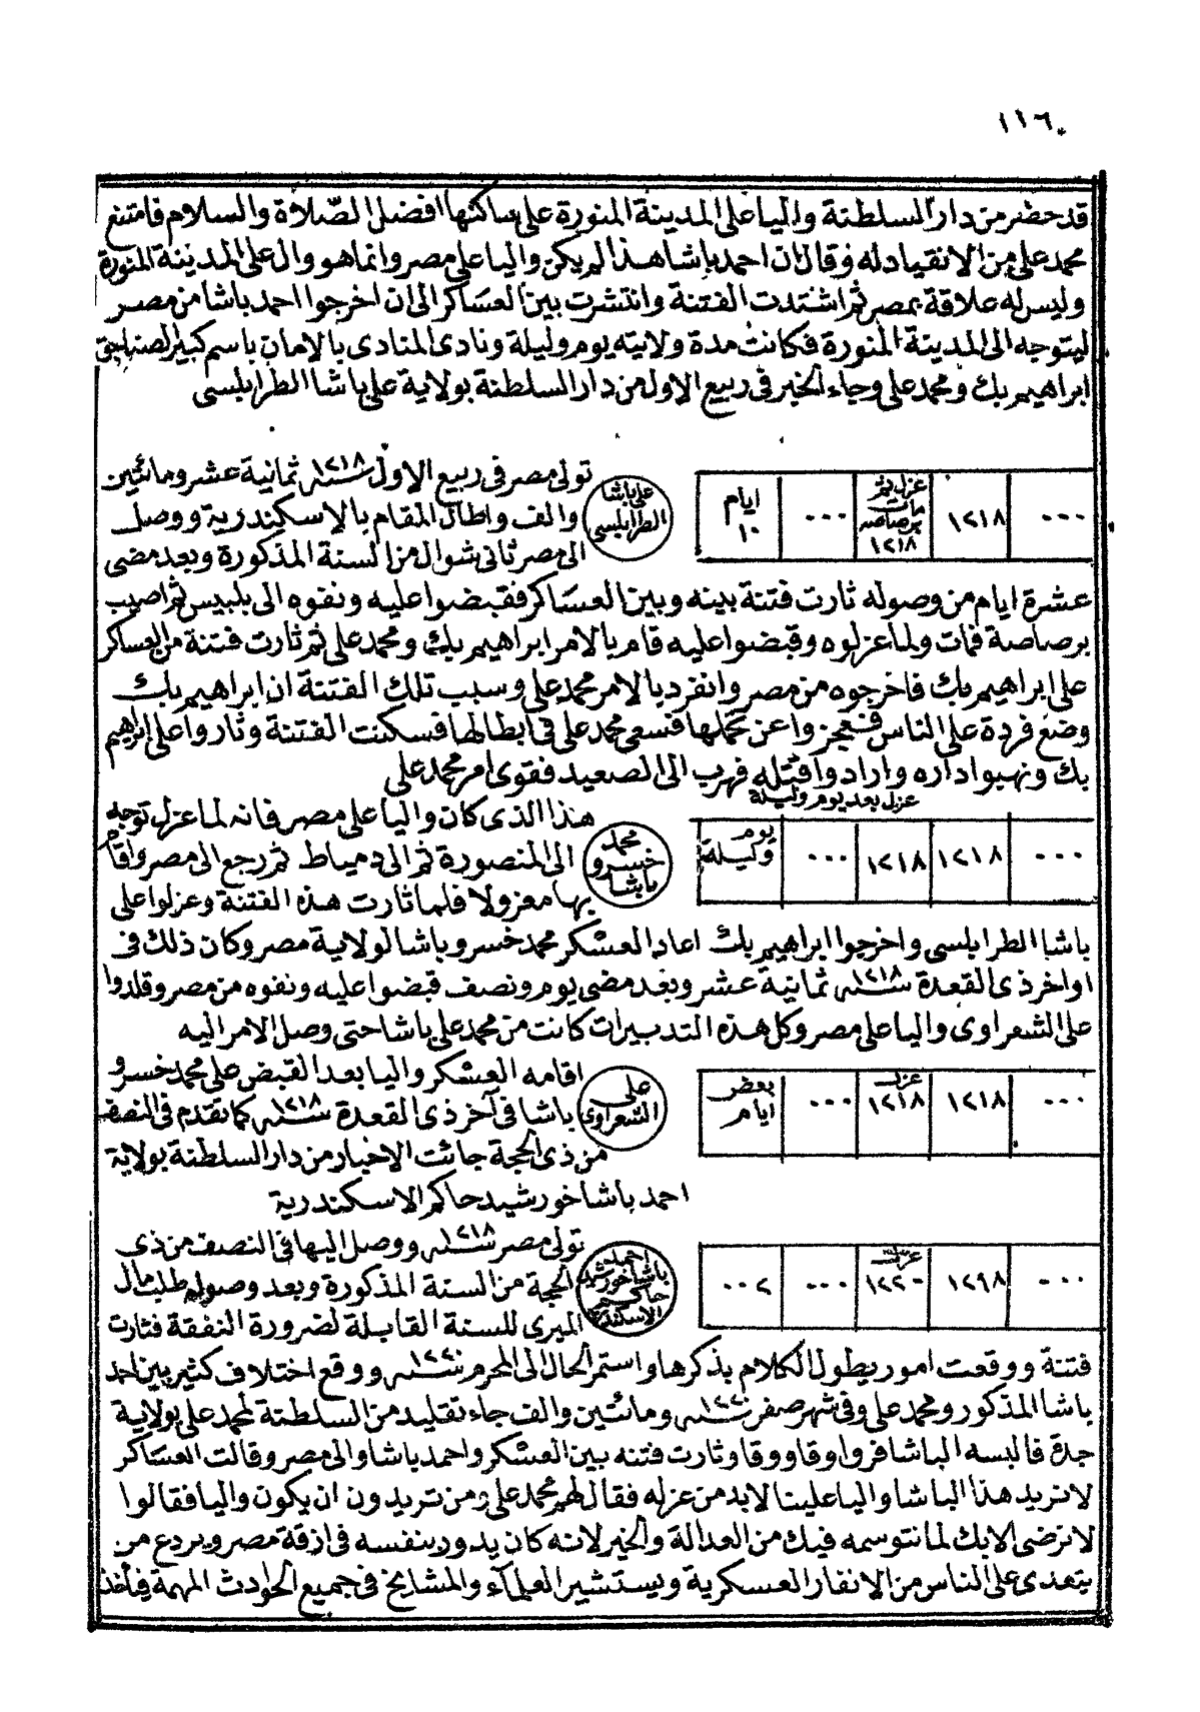 ١١٦
قد حضر من دار السلطنة واليا على المدينة المنورة على ساكنها افضل الصّلاة والسلام فامتنع
محمد على من الانقياد له وقال ان احمد باشا هذا لم يكن واليا على مصر وانما هو وال على المدينة المنورة
وليس له علاقة بمصر ثم اشتدت الفتنة وانتشرت بين العساكر الى ان اخرجوا احمد باشا من مصر
ليتوجه الى المدينة المنورة فكانت مدة ولايته يوم وليلة ونادى المنادى بالامان باسم كبير الصناجق
ابراهيم بك ومحمد على وجاء الخبر فى ربيع الاول من دار السلطنة بولاية على باشا الطرابلسى
٠٠٠
١٢١٨
عزل ثم مات برصاصه ١٢١٨
٠٠٠
ايام ١٠
على باشا الطرابلسى
تولى مصر فى ربيع الاول سنه ١٢١٨ ثمانية عشر ومائتين
والف واطال المقام بالاسكندرية ووصل
الى مصر ثانى شوال من السنة المذكورة وبعد مضى
عشرة ايام من وصوله ثارت فتنة بينه وبين العساكر فقبضوا عليه ونفوه الى بلبيس ثم اصيب
برصاصة فمات ولما عزلوه وقبضوا عليه قام بالامر ابراهيم بك ومحمد على ثم ثارت فتنة من العساكر
على ابراهيم بك فاخرجوه من مصر وانفرد بالامر محمد على وسبب تلك الفتنة ان ابراهيم بك
وضع فردة على الناس فعجزوا عن تحملها فسعى محمد على فى ابطالها فسكنت الفتنة وثاروا على ابراهيم
بك ونهبوا داره وارادوا قتله فهرب الى الصعيد فقوى امر محمد على
عزل بعد يوم وليلة
٠٠٠
١٢١٨
١٢١٨
٠٠٠
يوم وليلة
محمد خسرو باشا
هذا الذى كان واليا على مصر فانه لما عزل توجه
الى المنصورة ثم الى دمياط ثم رجع الى مصر واقام
بها معزولا فلما ثارت هذه الفتنة وعزلوا على
باشا الطرابلسى واخرجوا ابراهيم بك اعاد العسكر محمد خسرو باشا لولاية مصر وكان ذلك فى
اواخر ذى القعدة سنه ١٢١٨ ثمانية عشر وبعد مضى يوم ونصف قبضوا عليه ونفوه من مصر وقلدوا
على الشعراوى واليا على مصر وكل هذه التدبيرات كانت من محمد على باشا حتى وصل الامر اليه
٠٠٠
١٢١٨
عزل ١٢١٨
٠٠٠
بعض ايام
على الشعراوى
اقامه العسكر واليا بعد القبض على محمد خسرو
باشا فى آخر ذى القعدة سنه ١٢١٨ كما تقدم فى النصف
من ذى الحجة جائت الاخبار من دار السلطنة بولاية
احمد باشا خورشيد حاكم الاسكندرية
٠٠٠
١٢٩٨
عزل ١٢٢٠
٠٠٠
٠٠٢
احمد باشا خورشيد حاكم الاسكندرية
تولى مصر سنه ١٢١٨ ووصل اليها فى النصف من ذى
الحجة من السنة المذكورة وبعد وصوله طلب مال
الميرى للسنة القابلة لضرورة النفقة فثارت
فتنة ووقعت امور يطول الكلام بذكرها واستمر الحال الى المحرم سنه ١٢٢٠ ووقع اختلاف كثير بين احمد
باشا المذكور ومحمد على وفى شهر صفر سنه ١٢٢٠ ومائتين والف جاء تقليد من السلطنة لمحمد على بولاية
جدة فالبسه الباشا فروا وقاووقا وثارت فتنه بين العسكر واحمد باشا والى مصر وقالت العساكر
لا نريد هذا الباشا واليا علينا لا بد من عزله فقال لهم محمد على ومن تريدون ان يكون واليا فقالوا
لا نرضى الا بك لما نتوسمه فيك من العدالة والخير لانه كان يدور بنفسه فى ازقة مصر ويردع من
يتعدى على الناس من الانفار العسكرية ويستشير العلماء والمشايخ فى جميع الحوادث المهمة فيأخذ